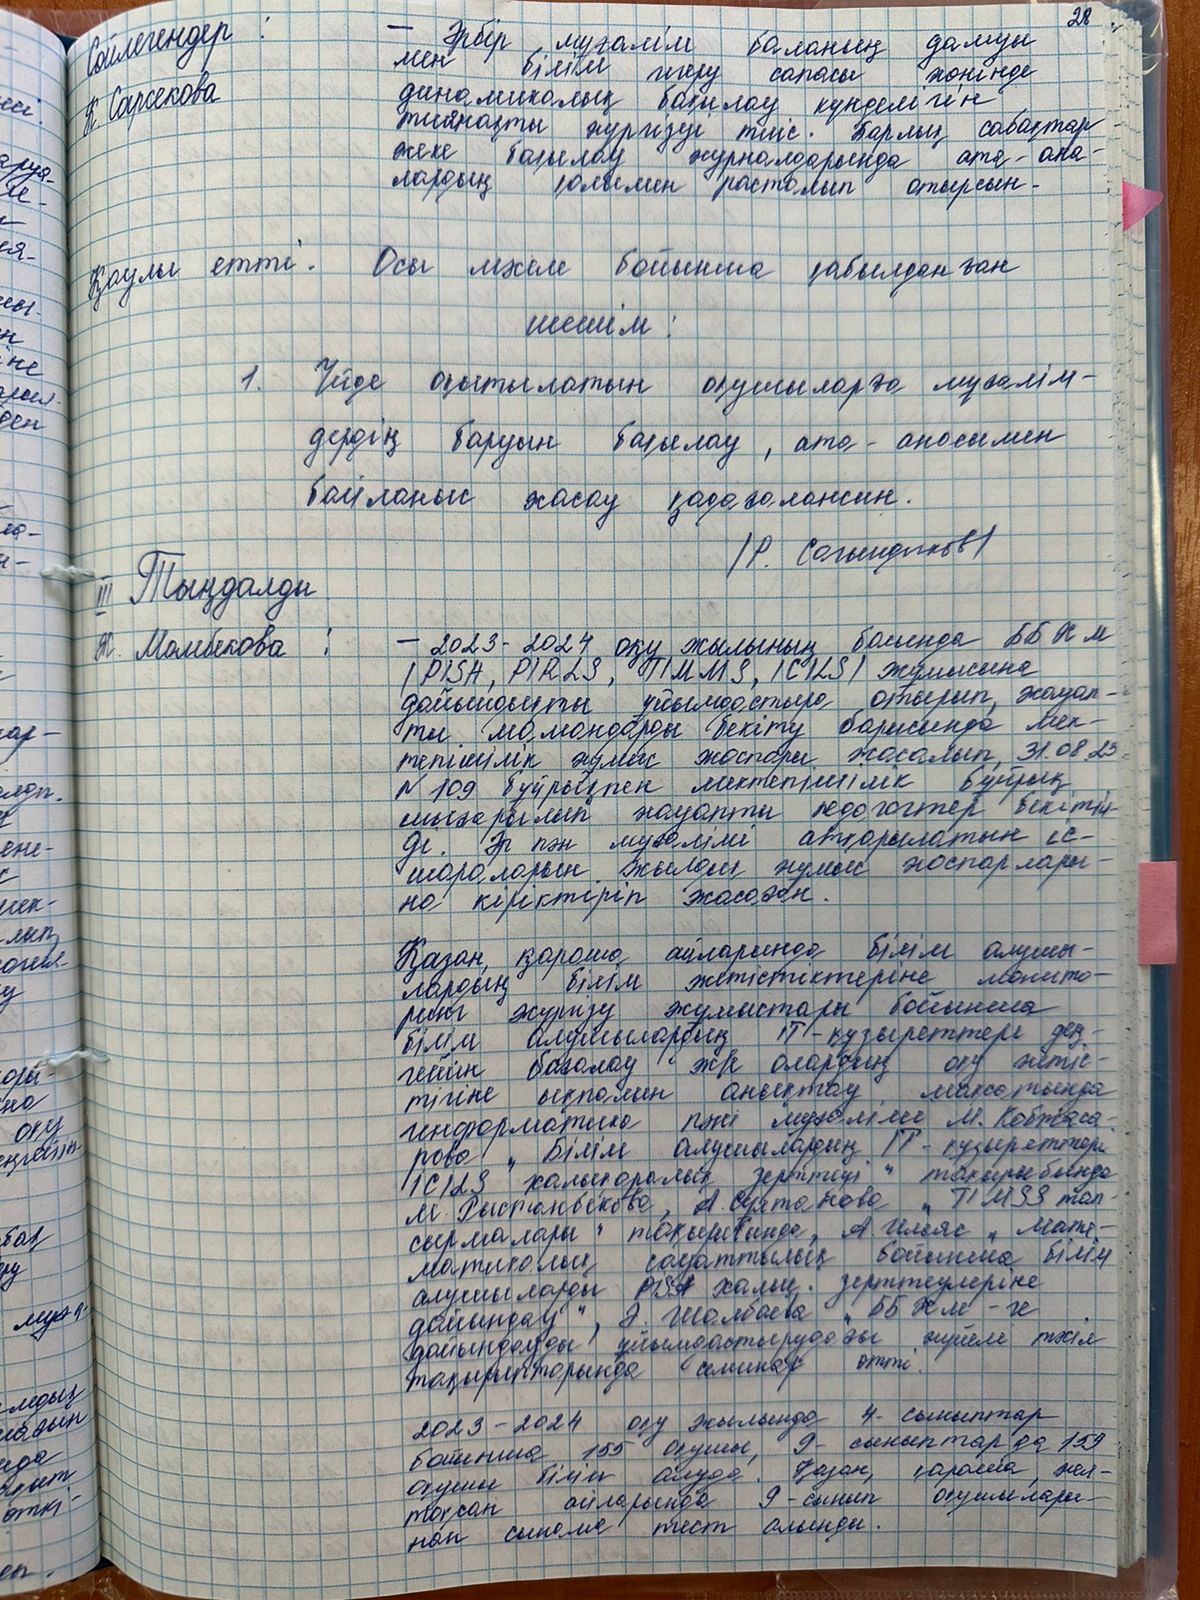 28
Сөйлегендер :
К. Сарсекова
— Әрбір мұғалім баланың дамуы
мен білім игеру сапасы жөнінде
динамикалық бақылау күнделігін
тиянақты жүргізуі тиіс. Барлық сабақтар
жеке бақылау журналдарында ата-ана-
лардың қолымен расталып отырсын.
Қаулы етті. Осы мәселе бойынша қабылданған
шешім:
1. Үйде оқытылатын оқушыларға мұғалім-
дердің баруын бақылау, ата-анасымен
байланыс жасау қадағалансын.
/Р. Сағындықов/
III Тыңдалды
Ж. Момбекова :
— 2023-2024 оқу жылының басында ББЖМ
/PISA, PIRLS, TIMMS, ICILS/ жұмысына
дайындықты ұйымдастыра отырып, жауап-
ты мамандарды бекіту барысында мек-
тепішілік жұмыс жоспары жасалып, 31.08.23
N 109 бұйрықпен мектепішілік бұйрық
шығарылып жауапты педагогтер бекітіл-
ді. Әр пән мұғалімі атқарылатын іс-
шараларын жылдық жұмыс жоспарлары-
на кіріктіріп жасаған.
Қазан, қараша айларында білім алушы-
лардың білім жетістіктеріне монито-
ринг жүргізу жұмыстары бойынша
білім алушылардың IT-құзыреттері дең-
гейін бағалау ж/е олардың оқу жетіс-
тігіне ықпалын анықтау мақсатында
информатика пәні мұғалімі М. Кобжаса-
рова „Білім алушылардың IT-құзыреттері
ICILS халықаралық зерттеуі" тақырыбында
М. Рыстанбекова, А. Султанова „TIMSS тап-
сырмалары" тақырыбында, А. Ильяс „Мате-
матикалық сауаттылық бойынша білім
алушыларды PISA халық. зерттеулеріне
дайындау", Ә. Шалбаева „ББЖМ-ге
дайындауды ұйымдастырудағы жүйелі тәсіл
тақырыптарында семинар өтті.
2023-2024 оқу жылында 4-сыныптар
бойынша 155 оқушы, 9-сыныптарда 159
оқушы білім алуда. Қазан, қараша, жел-
тоқсан айларында 9-сынып оқушылары-
нан сынама тест алынды.